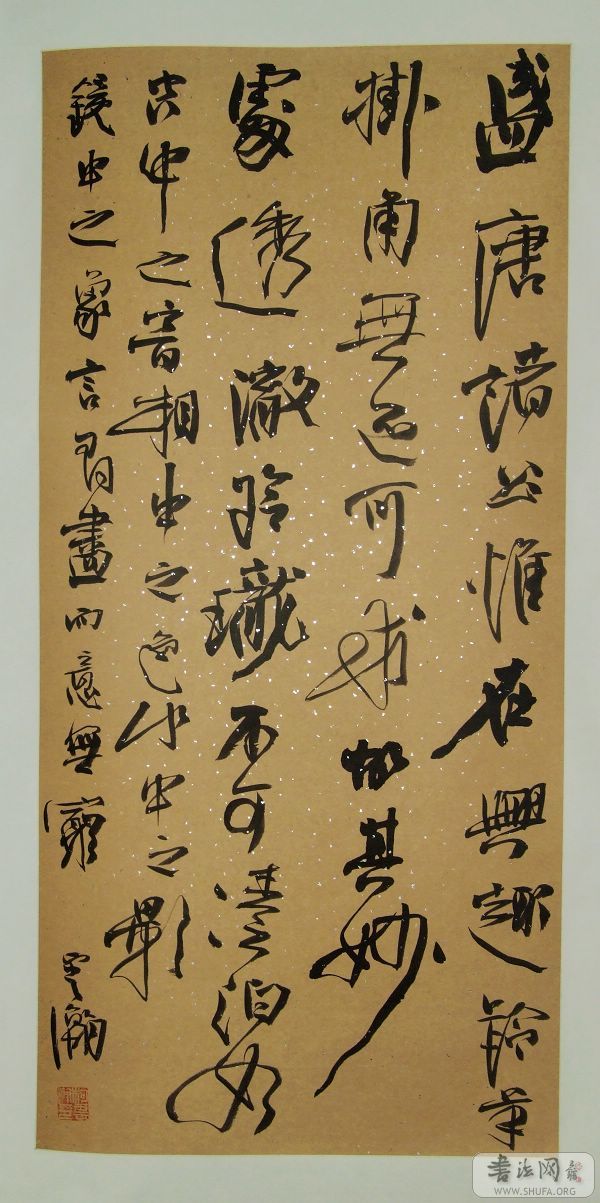 盛唐諸公惟在興趣羚羊
掛角無迹可求故其妙
處透澈玲瓏不可湊泊如
空中之音相中之色水中之影
鏡中之象言有盡而意無窮
瀚
書法网
WWW.SHUFA.ORG